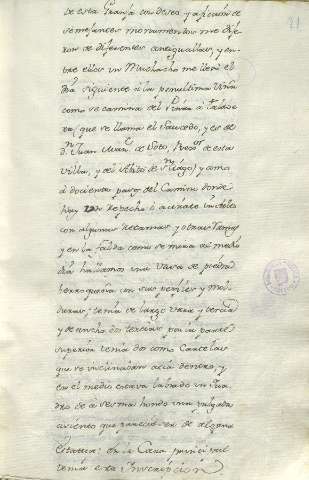 de esta Granja con deseo y aficion de
semejantes monumentos me dije
ron de diferentes antiguallas, y en
tre ellos un Muchacho me llevó el
dia siguiente á la penultima Viña
como se camina del Pinar á
(que se llama el Saucedo, y es de
Dn Juan Man.l de Soto, de esta
villa, y del Abito de Sn tiago) y como
á docientos pasos del Camino donde
hay un Repecho ó
con algunas Retamas y otras
y en la falda como se mira al medio
dia hallamos una Vasa de piedra
berroqueña con sus perfiles y mol
duras; tenia de largo vara y tercia
y de ancho dos tercias por la parte
superior tenia dos como Canceles
que se inclinaban acia dentro, y
en el medio estava labrado un qua
dro de á sesma hondo una pulgada
asiento que pareció ser de alguna
Estatua: en la Cara principal
tenia esta Inscripcion